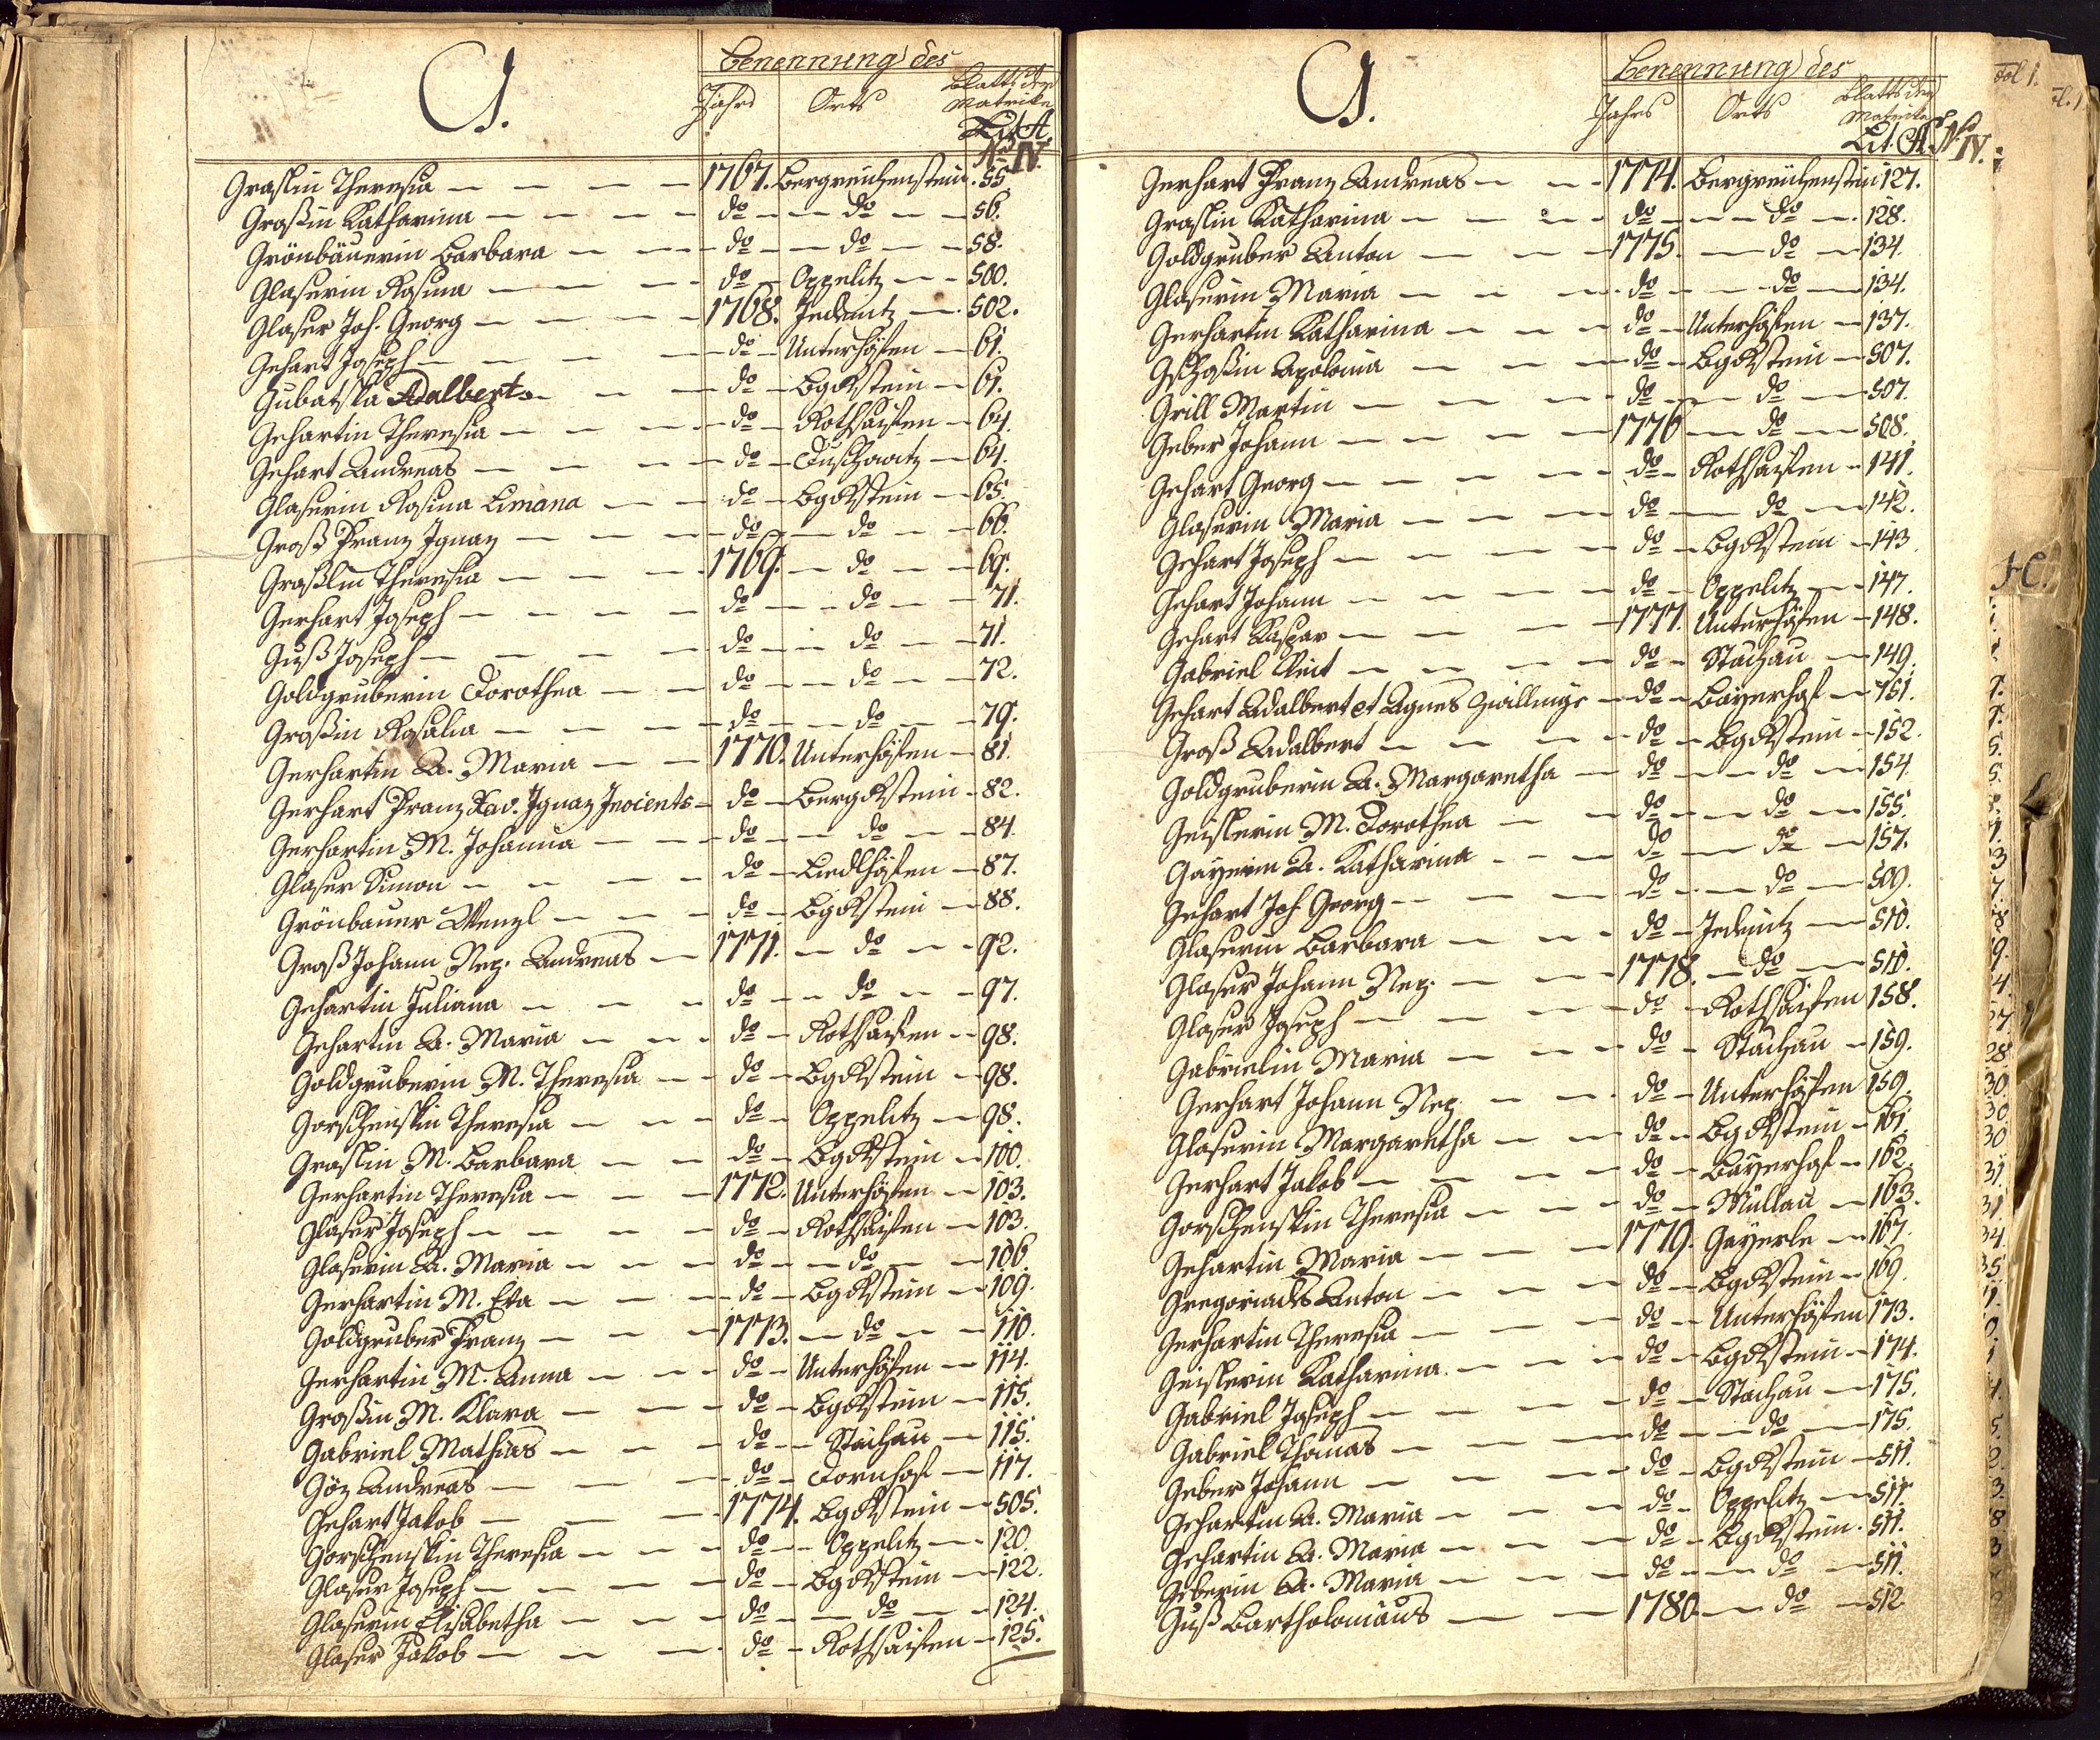 G.
Benennung des
Jahrs Orts Blatts der Matricke
Lit. A. No IV.
Graslin Theresia — — — — 1767. Bergreichenstein. 55.
Großin Katharina — — — — do — — do — — 56.
Grönbäuerin Barbara — — — do — — do — — 58.
Glaserin Rosina — — — — do — Oppelitz — — 500.
Glaser Joh. Georg — — — — 1768. Jedenitz — 502.
Gehart Joseph — — — — do — Unterhöfen — 61.
Gubatska Adalbert — — — do — BgRstein — 61.
Gehartin Theresia — — — — do — Rothsaifen — 64.
Gehart Andreas — — — — do — Duschowitz — 64.
Glaserin Rosina Limana — — do — BgRstein — 65.
Groß Franz Ignaz — — — — do — — do — — 66.
Großlin Theresia — — — — 1769. — do — — 69.
Gerhart Joseph — — — — do — — do — — 71.
Guß Joseph — — — — do — — do — — 71.
Goldgruberin Dorothea — — do — — do — — 72.
Großin Rosalia — — — — do — — do — — 79.
Gerhartin A. Maria — — 1770. Unterhöfen — 81.
Gerhart Franz Xav. Ignaz Inocents — do — BergRstein — 82.
Gerhartin M. Johanna — — — do — — do — — 84.
Glaser Simon — — — — do — Liedlhöfen — 87.
Grönbauer Wenzl — — — do — BgRstein — 88.
Groß Johann Nep. Andreas — 1771. — do — — 92.
Gehartin Juliana — — — do — — do — — 97.
Gehartin A. Maria — — — do — Rothsaifen — 98.
Goldgruberin M. Theresia — — do — BgRstein — 98.
Gorschenskin Theresia — — — do — Oppelitz — 98.
Graslin M. Barbara — — do — BgRstein — 100.
Gerhartin Theresia — — — 1772. Unterhöfen — 103.
Glaser Joseph — — — — do — Rothsaifen — 103.
Glaserin A. Maria — — — do — — do — — 106.
Gerhartin M. Eva — — — do — BgRstein — 109.
Goldgruber Franz — — — 1773. — do — — 110.
Gerhartin M. Anna — — — do — Unterhöfen — 114.
Großin M. Klara — — — do — BgRstein — 115.
Gabriel Mathias — — — do — — Stachau — 115.
Göz Andreas — — — do — Dornhof — 117.
Gehart Jakob — — — 1774. BgRstein — 505.
Gorschenskin Theresia — — — do — — Oppelitz — 120.
Glaser Joseph — — — — do — BgRstein — 122.
Glaserin Elisabetha — — — do — — do — — 124.
Glaser Jakob — — — do — Rothsaifen — 125.
G.
Benennung des
Jahrs Orts Blatts der Matricke
Lit. A. No IV.
Gerhart Franz Andreas — — 1774. Bergreichenstein 127.
Graslin Katharina — — — — do — — do — 128.
Goldgruber Anton — — — 1775. — do — 134.
Glaserin Maria — — — do — — do — 134.
Gerhartin Katharina — — — do — Unterhöfen — 137.
Gschoßin Apolonia — — — do — BgRstein — 507.
Grill Martin — — — — do — — do — 507.
Geber Johann — — — — 1776 — do — 508.
Gehart Georg — — — — do — Rothsaifen — 141.
Glaserin Maria — — — do — do — 142.
Gehart Joseph — — — — do — BgRstein — 143.
Gehart Johann — — — — do — Oppelitz — 147.
Gehart Kaspar — — — 1777. Unterhöfen — 148.
Gabriel Veit — — — — do — Stachau — 149.
Gehart Adalbert et Agnes Zwillinge — do — Bäyerhof — 151.
Groß Adalbert — — — — do — BgRstein — 152.
Goldgruberin A. Margaretha — do — — do — 154.
Geislerin M. Dorothea — — do — — do — 155.
Gayerin A. Katharina — — — do — do — 157.
Gehart Joh Georg — — — do — — do — 509.
Glaserin Barbara — — — do — Jedenitz — 510.
Glaser Johann Nep. — — — 1778. — do — 510.
Glaser Joseph — — — — do — Rothsaifen 158.
Gabrielin Maria — — — do — Stachau — 159.
Gerhart Johann Nep. — — do — Unterhöfen 159.
Glaserin Margaretha — — do — BgRstein — 161.
Gerhart Jakob — — — — do — Bäyerhof — 162.
Gorschenskin Theresia — — — do — Müllau — 163.
Gehartin Maria — — — 1779. Gayerle — 167.
Gregoriades Anton — — — do — BgRstein — 169.
Gerhartin Theresia — — — do — Unterhöfen 173.
Geislerin Katharina — — — do — BgRstein — 174.
Gabriel Joseph — — — — do — Stachau — 175.
Gabriel Thomas — — — do — — do — 175.
Geber Johann — — — — do — BgRstein — 511.
Gehartin A. Maria — — — do — Oppelitz — 511.
Gehartin A. Maria — — — do — BgRstein. 511.
Geberin A. Maria — — — do — — do — 511.
Guß Bartholomäus — — 1780. — do — 512
fol 1.
H.